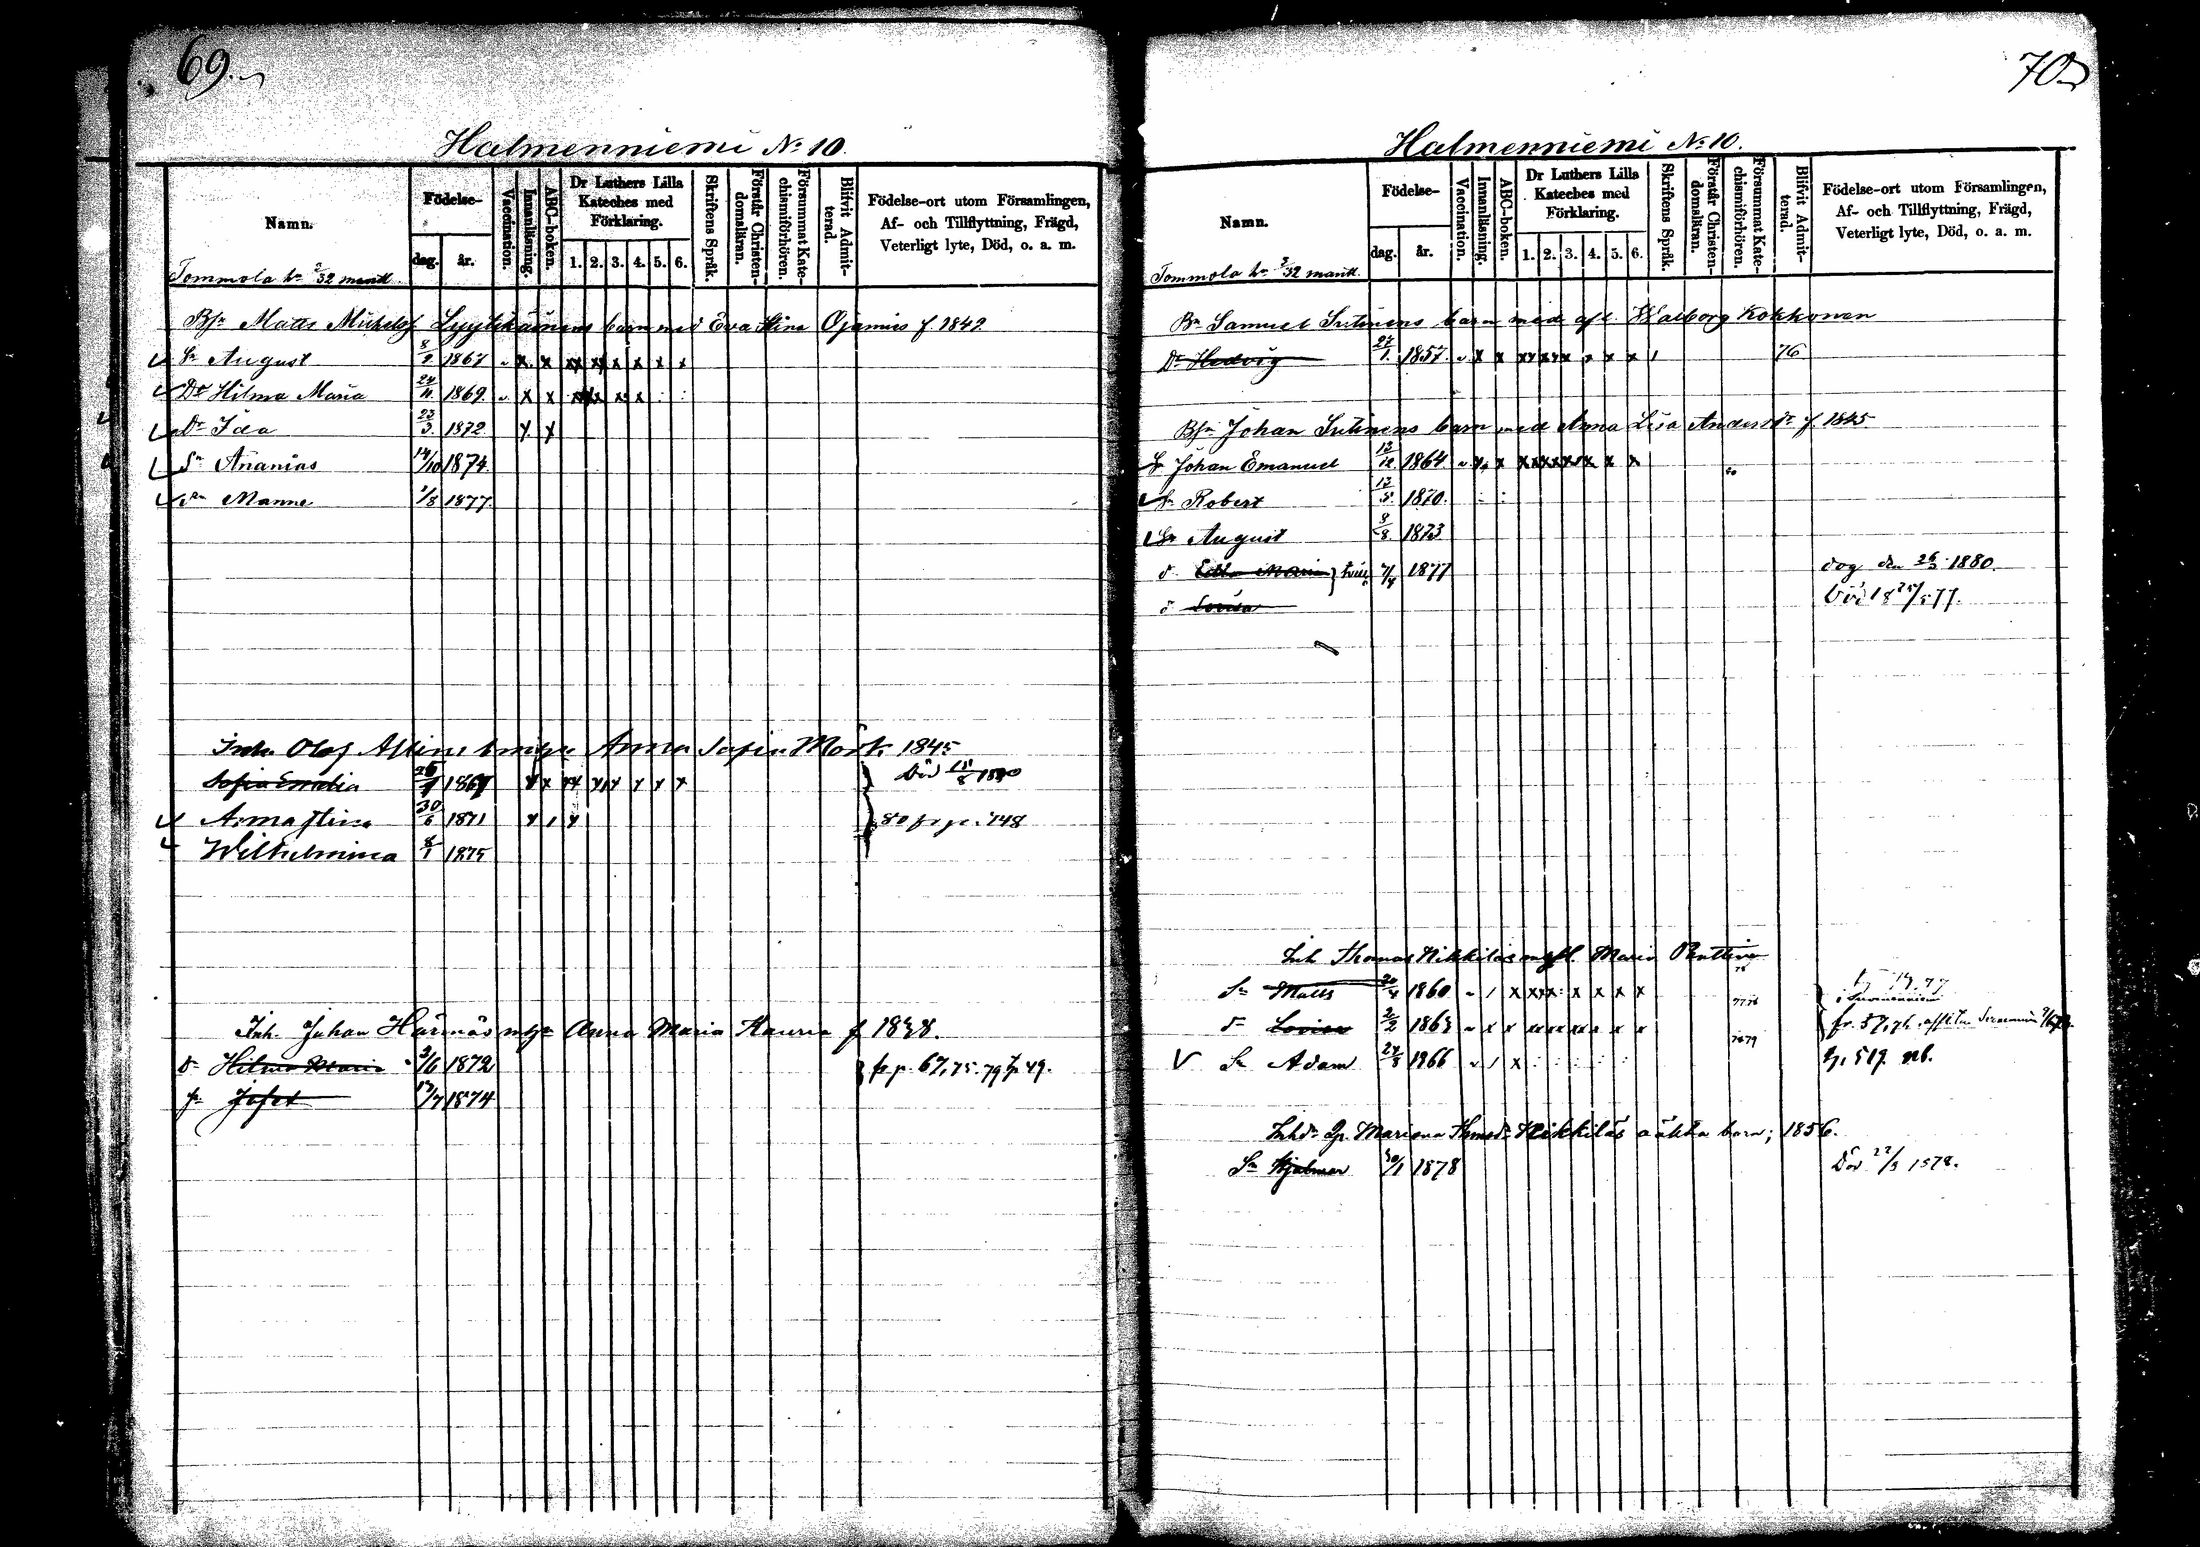 69.
Halmenniemi No 10.
Namn.
Födelse-
dag.
år.
Vaccination.
Innanläsning.
ABC-boken.
Dr Luthers Lilla Kateches med Förklaring.
1. 2. 3. 4. 5. 6.
Skriftens Språk.
Förstår Christen-domsläran.
Försummat Kate-chismiförhören.
Blifvit Admit-terad.
Födelse-ort utom Församlingen,
Af- och Tillflyttning, Frägd,
Veterligt lyte, Död, o. a. m.
Tommola hn 2/32 mantl.
Bfn Matts Michelsf. Lyytikäinens barn med Eva Stina Ojamies f 1842
Sn August 8/2 1867 x x xx xx x x x x
Dr Hilma Maria 24/11 1869 x x x x
Dr Ida 23/3 1872 x x
Sn Ananias 14/10 1874
Sn Manne 1/8 1877
Olof Anna Sofia Mörk 1845
Sofia Emalia 1867 Död 15/8 1880
Anna Stina 30/6 1871 80 fr p. 148
Wilhelmina 8/1 1875
Inh. Johan Härmäs mhu Anna Maria Kauria f 1838.
dr Hilma Maria 2/6 1872 fr p. 67, 75. 79 49.
sn Josef 17/7 1874
70
Halmenniemi No 10.
Namn.
Födelse-
dag.
år.
Vaccination.
Innanläsning.
ABC-boken.
Dr Luthers Lilla Kateches med Förklaring.
1. 2. 3. 4. 5. 6.
Skriftens Språk.
Förstår Christen-domsläran.
Försummat Kate-chismiförhören.
Blifvit Admit-terad.
Födelse-ort utom Församlingen,
Af- och Tillflyttning, Frägd,
Veterligt lyte, Död, o. a. m.
Tommola hn 2/32 mantl.
Bn Samuel Sutinens barn med afl. Walborg Kokkonen
Dr Hedvig 27/1 1857 76
Bfn Johan Sutinens barn med Anna Lisa Andersdr f. 1845
Sn Johan Emanuel 13/12 1864
Sn Robert 1870
Sn August 9/8 1873
d Edla Maria 7/4 1877 dog den 26/2 1880.
d Lovisa Död 18 25/5 77.
Inh Thomas Nikkiläs Maria Penttinen
Sn Matts 1860
d Lovisa 2/2 1863
Sn Adam 24/8 1866
Inhdr Mariana Thomsdr Nikkiläs oäkta barn; 1856.
Sn Hjalmar 30/1 1878 Död 22/3 1878.